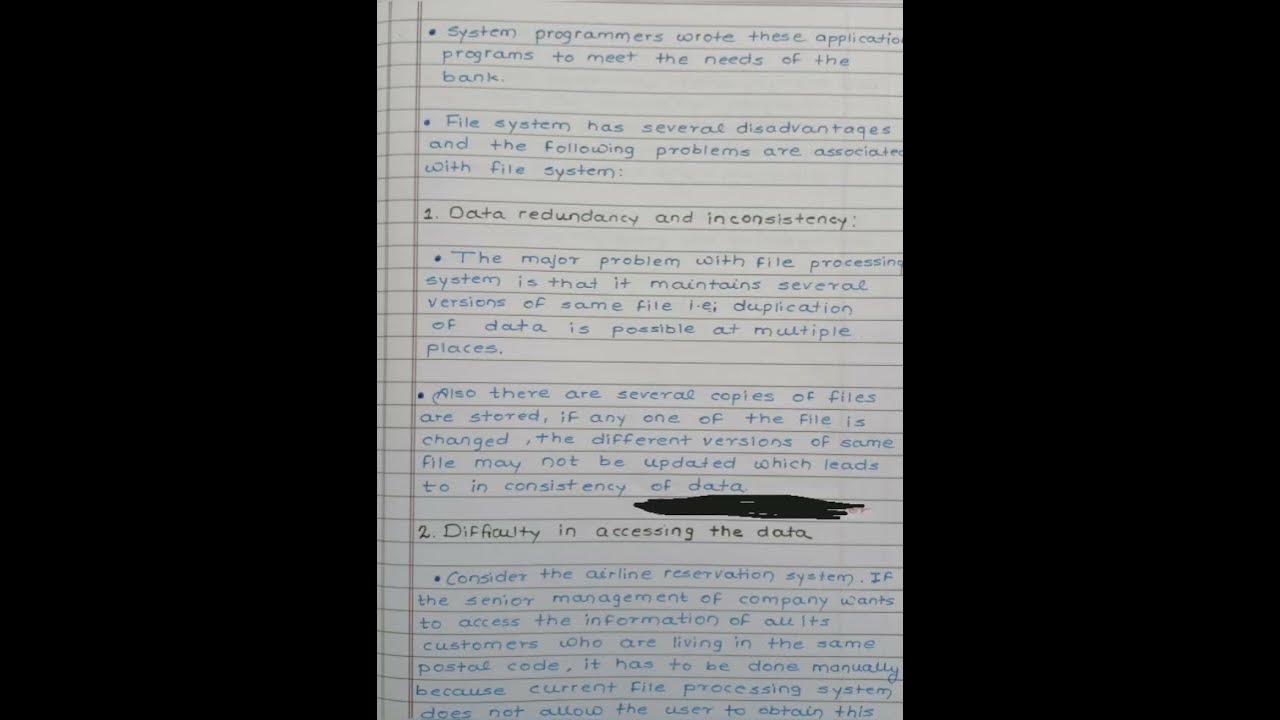 • System programmers wrote these applicatio
programs to meet the needs of the
bank.
• File system has several disadvantages
and the following problems are associated
with file system:
1. Data redundancy and inconsistency:
• The major problem with file processing
system is that it maintains several
versions of same file i.e; duplication
of data is possible at multiple
places.
• Also there are several copies of files
are stored, if any one of the file is
changed, the different versions of same
file may not be updated which leads
to in consistency of data.
2. Difficulty in accessing the data
• Consider the airline reservation system. If
the senior management of company wants
to access the information of all its
customers who are living in the same
postal code, it has to be done manually
because current file processing system
does not allow the user to obtain this